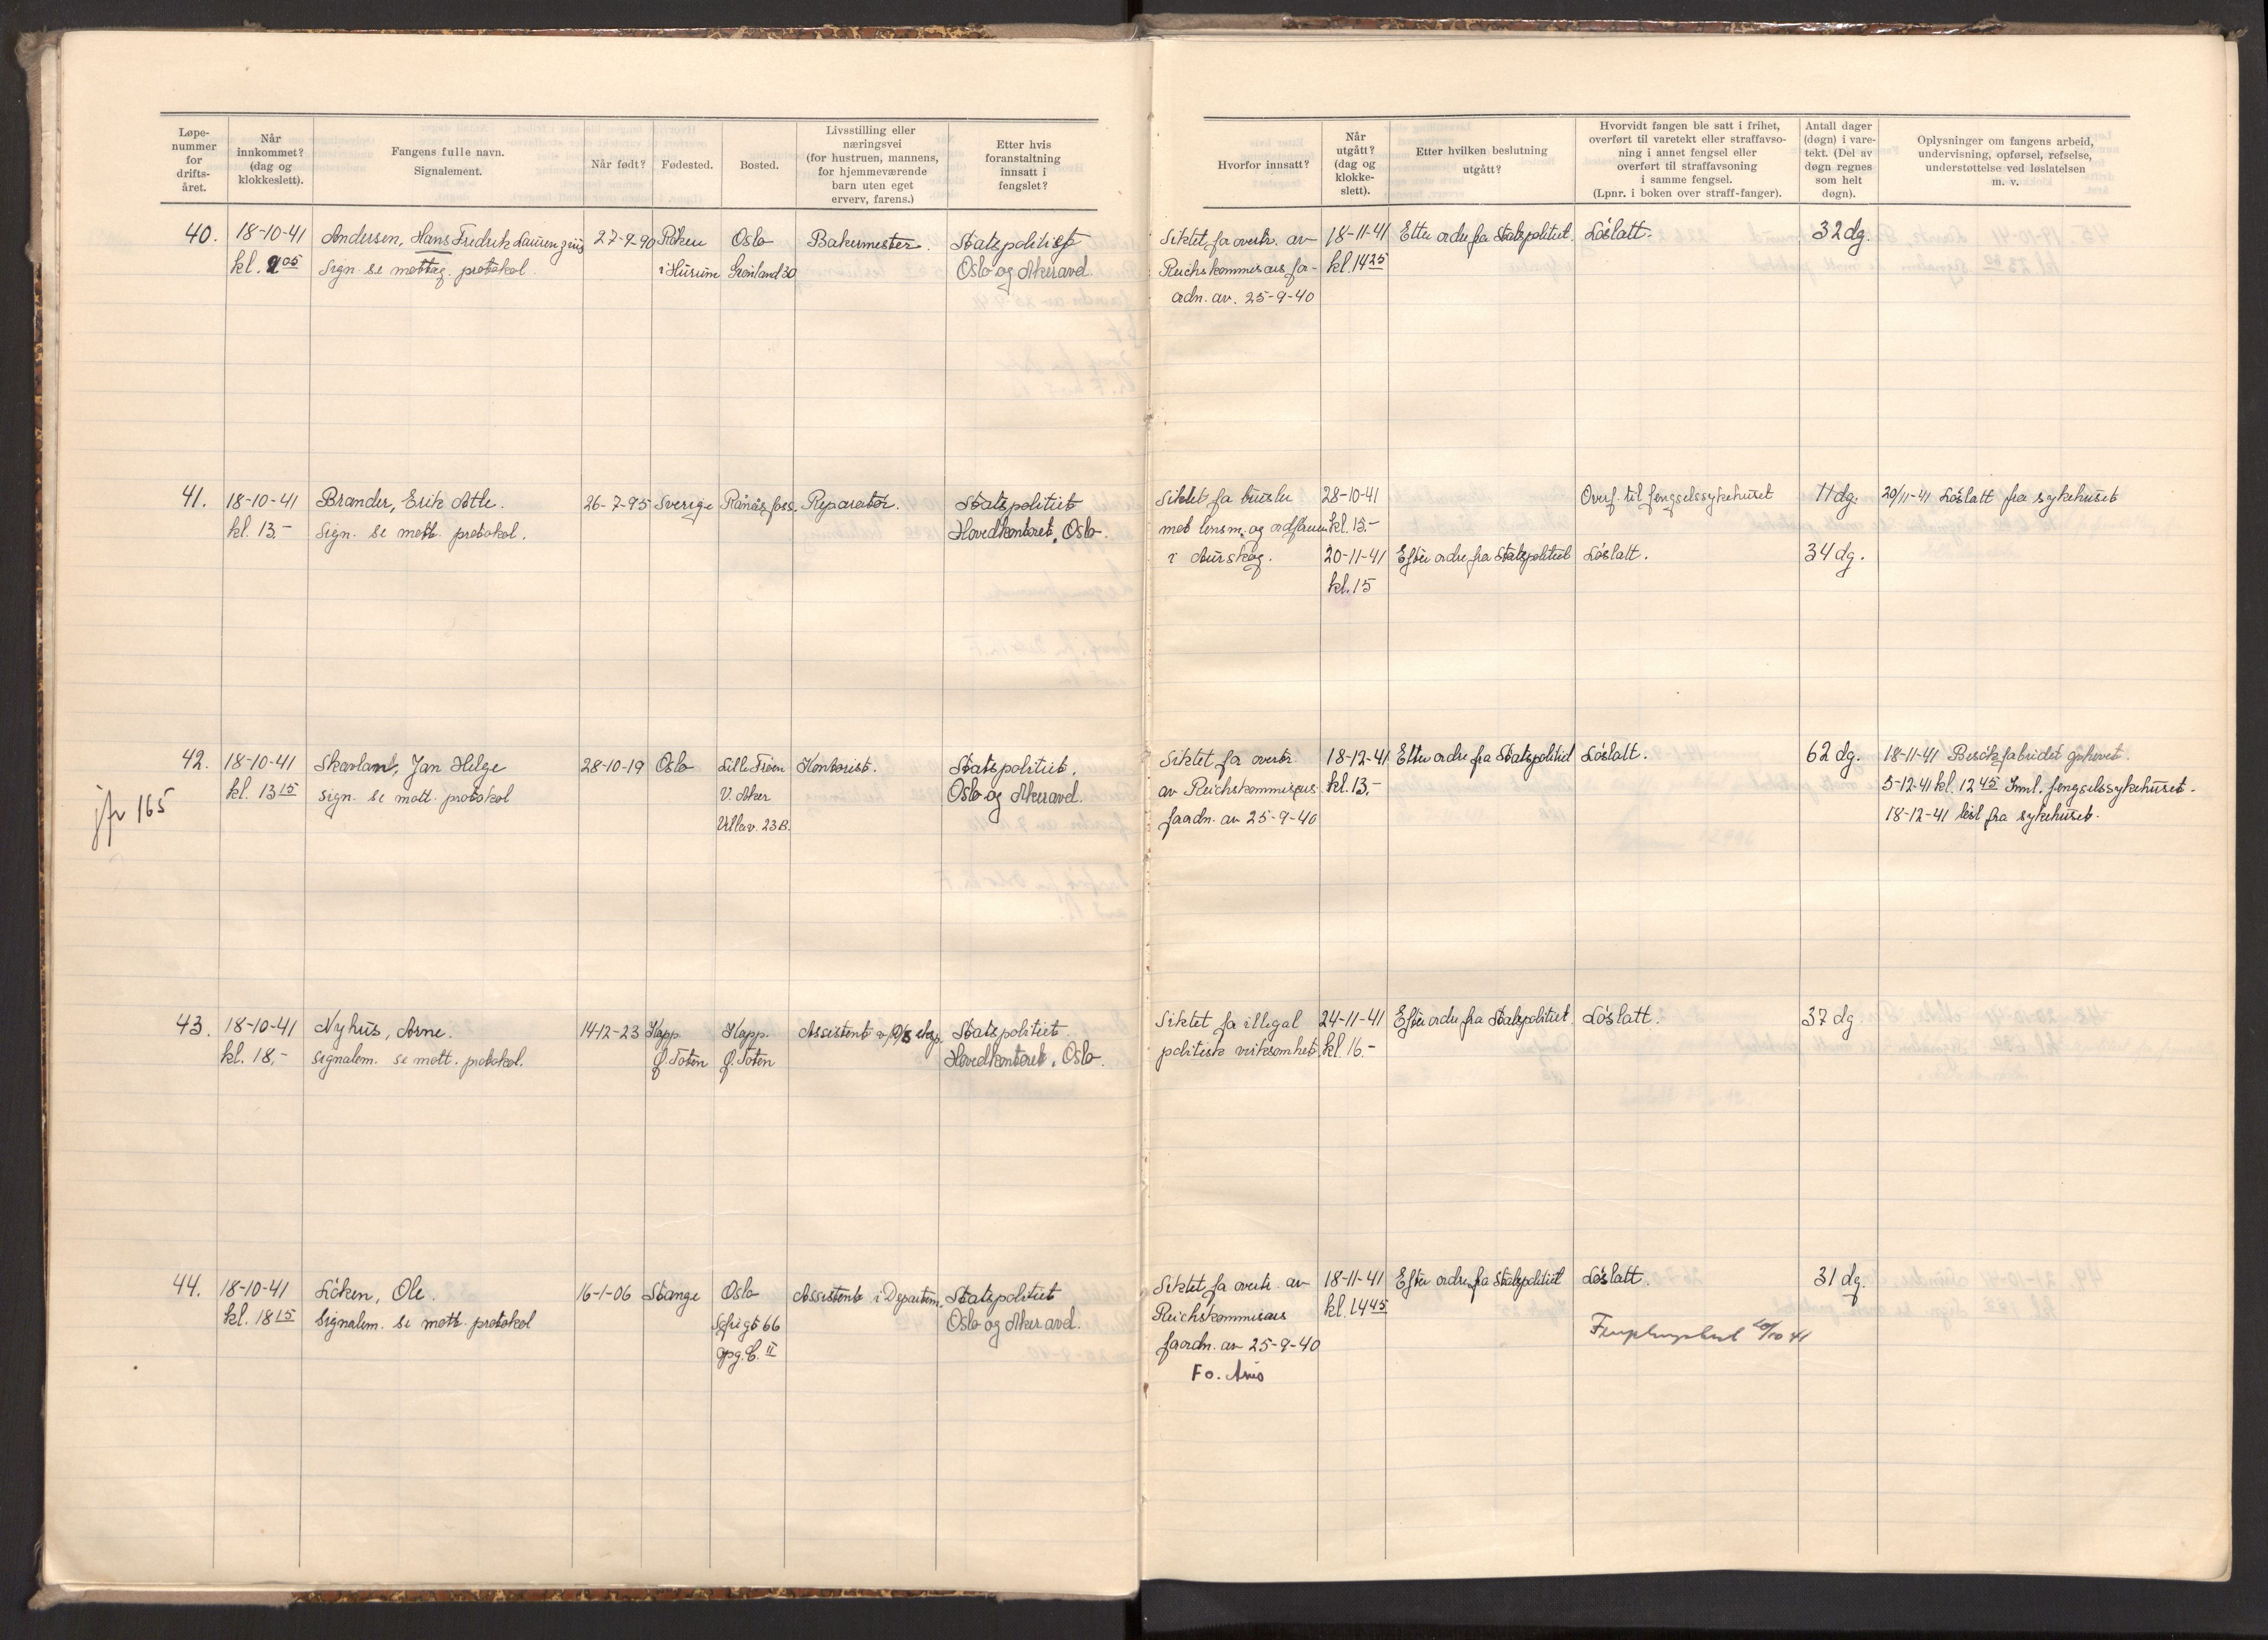 Løpe-
nummer
for
drifts-
året.
Når
innkommet?
(dag og
klokkeslett).
Fangens fulle navn.
Signalement.
Når født?
Fødested.
Bosted.
Livsstilling eller
næringsvei
(for hustruen, mannens,
for hjemmeværende
barn uten eget
erverv, farens.)
Etter hvis
foranstaltning
innsatt i
fengslet?
Hvorfor innsatt?
Når
utgått?
(dag og
klokke-
slett).
Etter hvilken beslutning
utgått?
Hvorvidt fangen ble satt i frihet,
overført til varetekt eller straffavso-
ning i annet fengsel eller
overført til straffavsoning
i samme fengsel.
(Lpnr. i boken over straff-fanger).
Antall dager
(døgn) i vare-
tekt. (Del av
døgn regnes
som helt
døgn).
Oplysninger om fangens arbeid,
undervisning, opførsel, refselse,
understøttelse ved løslatelsen
m. v.
40.
18-10-41
kl. 9 05
Andersen, Hans Fredrik Laurenziüs
Sign. se mottag. protokol.
27-9-90
Röken
i Hürum
Oslo
Grønland 30
Bakermester.
Statspolitiet
Oslo og Aker avd.
Siktet for overtr. av
Reichskommisars for-
ordn. av. 25-9-40
18-11-41
kl. 14 25
Etter ordre fra Statspolitiet.
Löslatt.
32 dg.
41.
18-10-41
kl. 13,-
Brander, Erik Atle.
Sign. se mott. protokol.
26-7-95
Sverige
Rånåsfoss.
Reparatör.
Statspolitiet
Hovedkontoret, Oslo.
Siktet for trüsler
mot lensm. og ordfører
i Aürskog.
28-10-41
kl. 13.-
Overf. til fengselssykehüset
11 dg.
20/11-41 Löslatt fra sykehüset
20-11-41
kl. 15
Efter ordre fra Statspolitiet
Löslatt.
34 dg.
jfr 165
42.
18-10-41
kl. 13 15
Skavlant, Jan Helge
sign. se mott. protokol
28-10-19
Oslo
Lille Frøen
V. Aker
Ullev. 23B.
Kontorist.
Statspolitiet.
Oslo og Aker avd.
Siktet for overtr.
av Reichskommisars
forordn. av 25-9-40
18-12-41
kl. 13,-
Etter ordre fra Statspolitiet
Löslatt.
62 dg.
18-11-41 Besökforbudet ophevet.
5-12-41 kl. 12 45 Innl. fengselssykehüset.
18-12-41 løsl fra sykehüset.
43.
18-10-41
kl. 18,-
Nyhüs, Arne.
signalem. se mott. protokol.
14-12-23
Kapp
Ø. Toten
Kapp.
Ø. Toten
Assistent
Statspolitiet
Hovedkontoret, Oslo.
Siktet for illegal
politisk virksomhet
24-11-41
kl. 16.-
Efter ordre fra Statspolitiet
Löslatt.
37 dg
44.
18-10-41
kl. 18 15
Löken, Ole.
Signalem. se mott. protokol
16-1-06
Stange
Oslo
66
opg. C. II
Assistent i Departem.
Statspolitiet
Oslo og Aker avd.
Siktet for overtr. av
Reichskommisars
forordn. av 25-9-40
Fo. Avis
18-11-41
kl. 14 45
Efter ordre fra Statspolitiet
Löslatt.
31 dg.